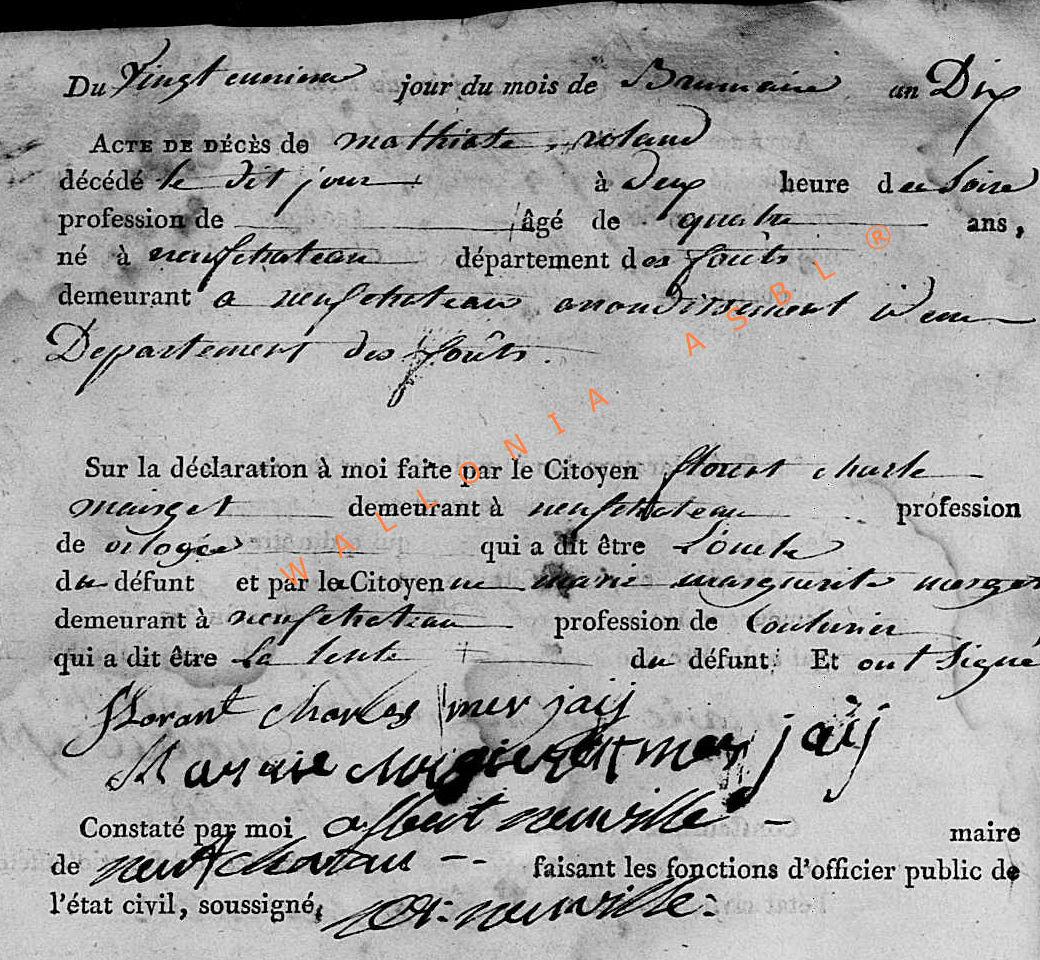 Du Vingt unieme jour du mois de Brumaire an Dix
ACTE DE DÉCÈS de mathiate roland
décédé le dit jour à deux heure du Soire
profession de âgé de quatre ans,
né à neufchateau département des forêts
demeurant a neufchateau arrondissement idem
Departement des forêts.
Sur la déclaration à moi faite par le Citoyen florent charle
demeurant à neufchateau profession
de qui a dit être L'oncle
du défunt et par la Citoyenne marie marguerite
demeurant à neufchateau profession de Couturier
qui a dit être La tente du défunt. Et ont Signé
florant charles mer jaij
mer jaij
Constaté par moi albert neuville maire
de neufchatau faisant les fonctions d'officier public de
l'état civil, soussigné, neuville
WALLONIA ASBL ®